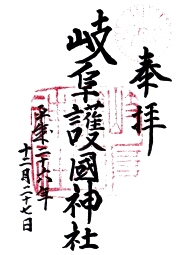 奉拝
岐阜護國神社
平成二十六年
十二月二十七日